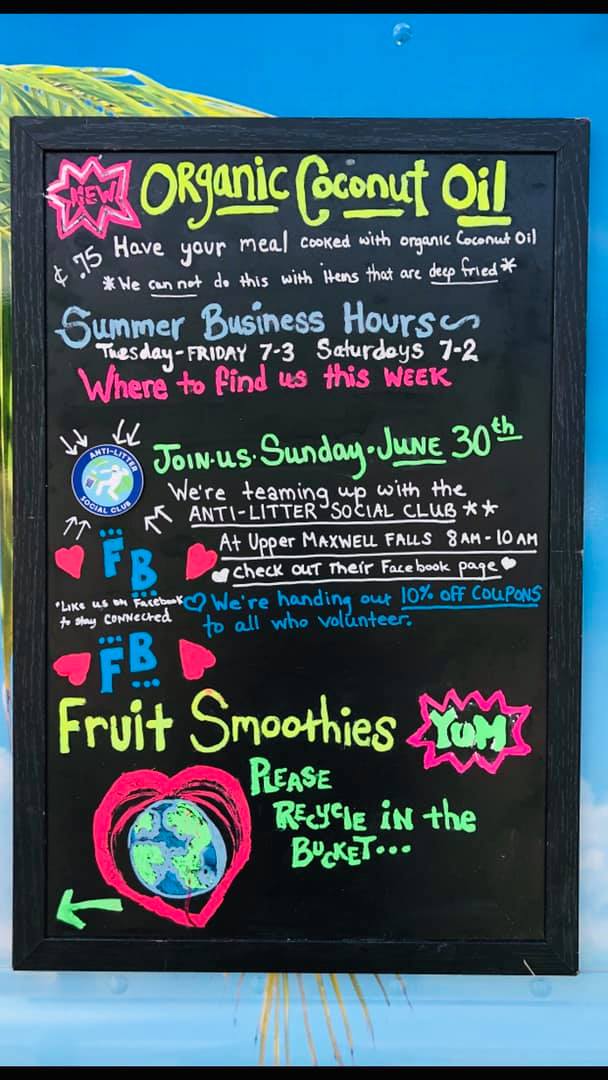 NEW
Organic Coconut Oil
¢.75 Have your meal cooked with organic Coconut Oil
*We can not do this with items that are deep fried*
Summer Business Hours
Tuesday-FRIDAY 7-3 Saturdays 7-2
Where to find us this WEEK
JOIN·US·Sunday·JUNE 30th
ANTI-LITTER
SOCIAL CLUB
We're teaming up with the
ANTI-LITTER SOCIAL CLUB **
At Upper MAXWELL FALLS 8AM-10AM
Check out their Facebook page
FB
*Like us on Facebook
to stay CONNected
We're handing out 10% OFF COUPONS
to all who volunteer.
FB
Fruit Smoothies
YUM
PLEASE
RECYCLE iN the
BUCKET...